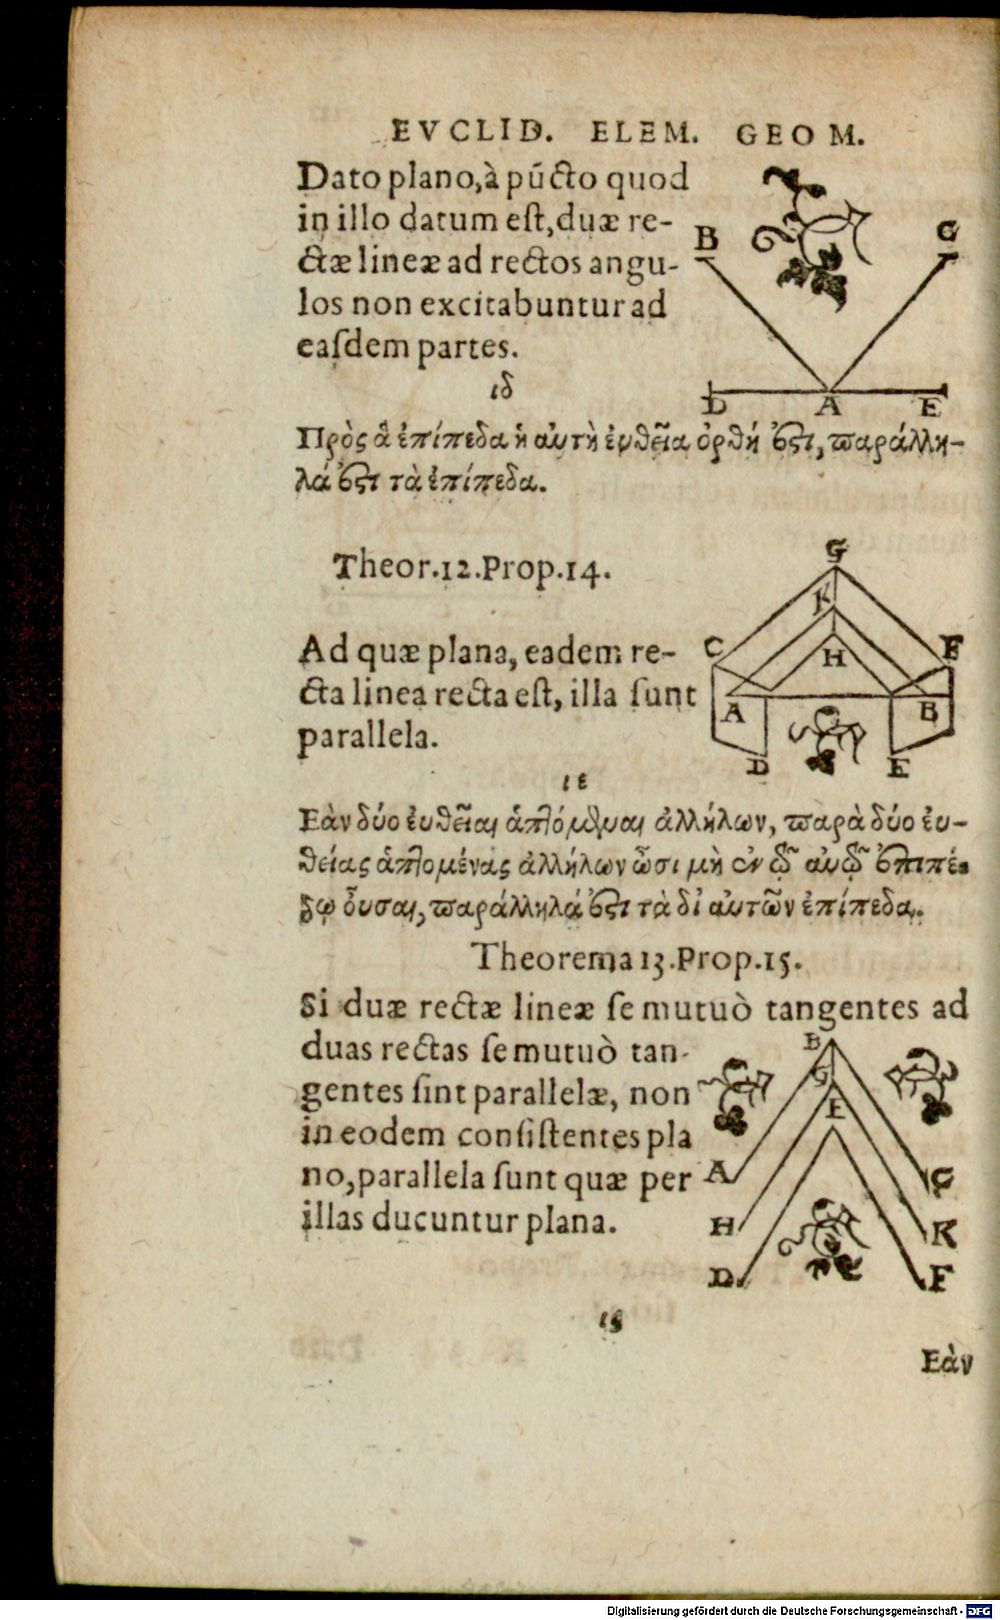 EVCLID. ELEM. GEOM.
Dato plano, à pūcto quod
in illo datum est, duæ re-
ctæ lineæ ad rectos angu-
los non excitabuntur ad
easdem partes.
B C
D A E
ιδ
Πρὸς ἃ ἐπίπεδα ἡ αὐτὴ ἐυθεῖα ὀρθή ἐστι, παράλλη-
λά ἐστι τὰ ἐπίπεδα.
Theor.12.Prop.14.
Ad quæ plana, eadem re-
cta linea recta est, illa sunt
parallela.
G
K
C H F
A B
D E
ιε
Εὰν δύο ἐυθεῖαι ἁπτόμεναι ἀλλήλων, παρὰ δύο ἐυ-
θείας ἁπτομένας ἀλλήλων ὦσι μὴ ἐν τῷ αὐτῷ ἐπιπέ-
δῳ οὖσαι, παράλληλά ἐστι τὰ δι᾽ αὐτῶν ἐπίπεδα.
Theorema 13.Prop.15.
Si duæ rectæ lineæ se mutuò tangentes ad
duas rectas se mutuò tan-
gentes sint parallelæ, non
in eodem consistentes pla
no, parallela sunt quæ per
illas ducuntur plana.
B
G
E
A C
H K
D F
ις
Εὰν
Digitalisierung gefördert durch die Deutsche Forschungsgemeinschaft - DFG